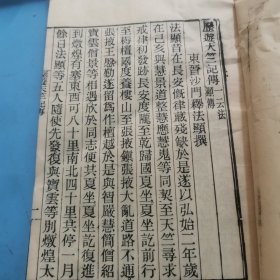 歷遊天竺記傳 云法顯傳
東晉沙門釋法顯撰
法顯昔在長安慨律藏殘缺於是遂以弘始二年歲
在己亥與慧景道整慧應慧嵬等同契至天竺尋求
戒律初發跡長安度隴至乾歸國夏坐夏坐訖前行
至耨檀國度養樓山至張掖鎮張掖大亂道路不通
張掖王慇懃遂留為作檀越於是與智嚴慧簡僧紹
寶雲僧景等相遇欣於同志便共夏坐夏坐訖復進
到燉煌有塞東西可八十里南北四十里共停一月
餘日法顯等五人隨使先發復與寶雲等別燉煌太